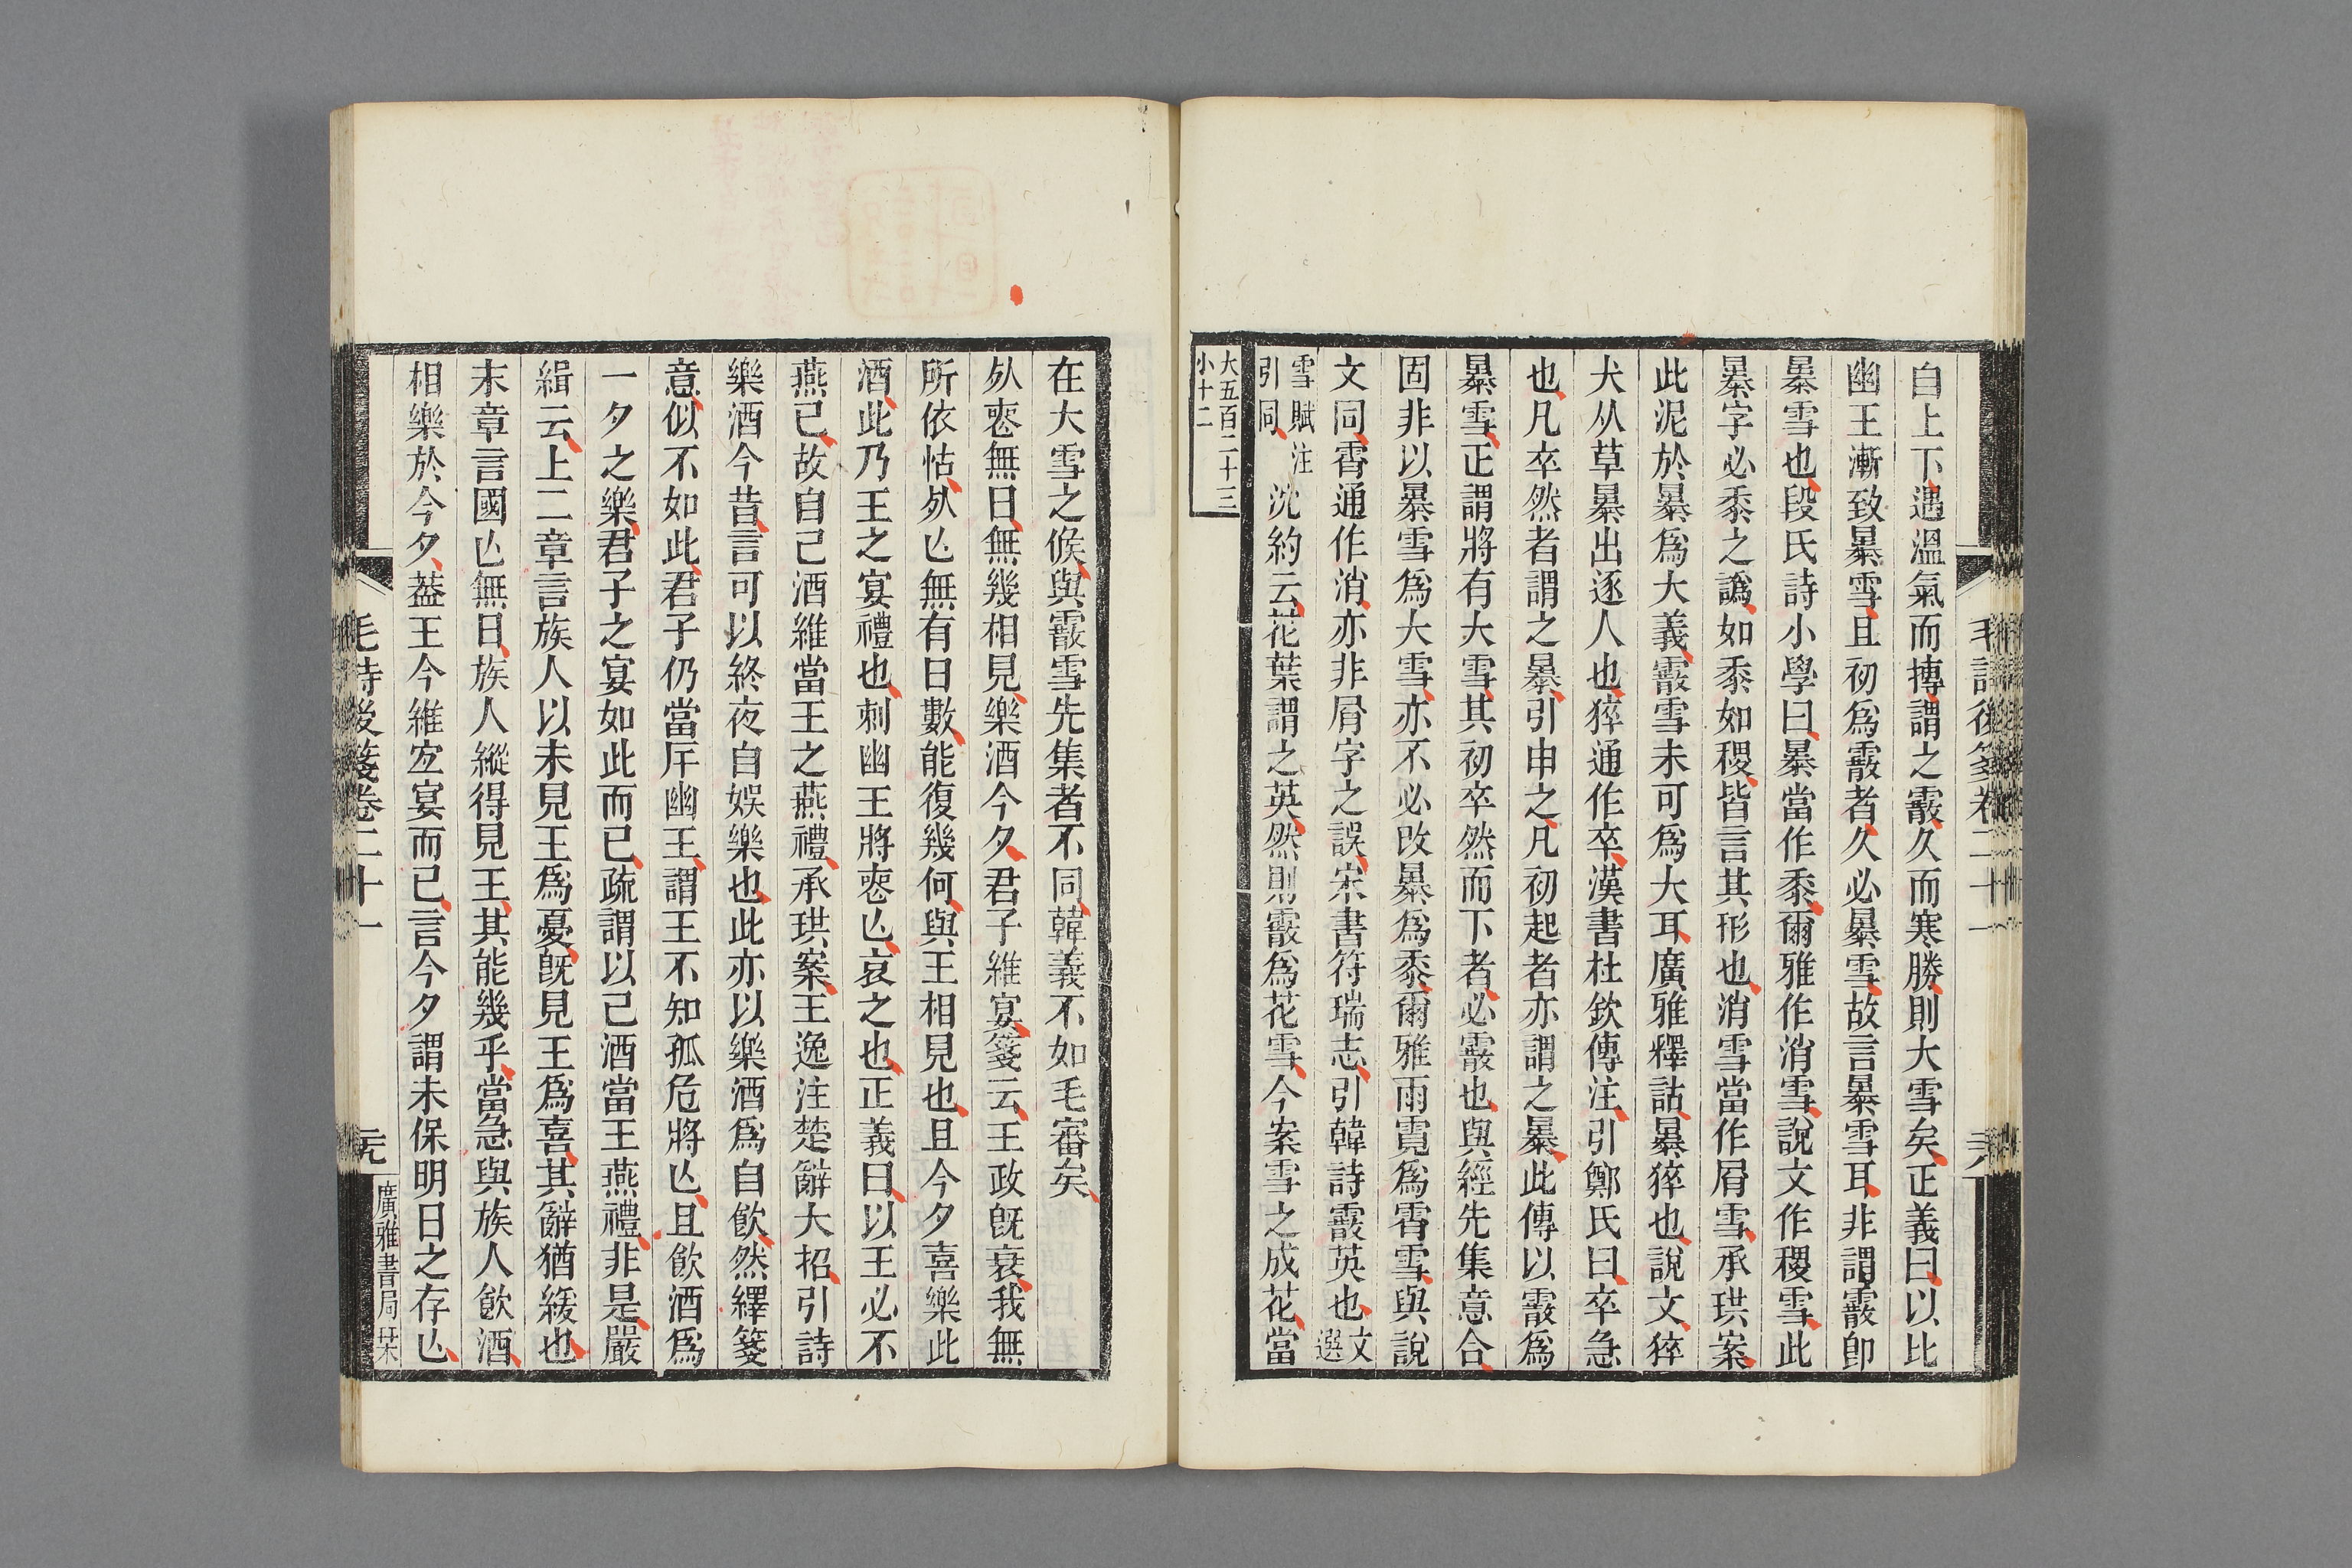 自上下遇溫氣而摶謂之霰久而寒勝則大雪矣正義曰以比
幽王漸致暴雪且初爲霰者久必暴雪故言暴雪耳非謂霰卽
暴雪也段氏詩小學曰暴當作黍爾雅作消雪說文作稷雪此
暴字必黍之譌如黍如稷皆言其形也消雪當作屑雪承珙案
此泥於暴爲大義霰雪未可爲大耳廣雅釋詁暴猝也說文猝
犬从草暴出逐人也猝通作卒漢書杜欽傳注引鄭氏曰卒急
也凡卒然者謂之暴引申之凡初起者亦謂之暴此傳以霰爲
暴雪正謂將有大雪其初卒然而下者必霰也與經先集意合
固非以暴雪爲大雪亦不必改暴爲黍爾雅雨霓爲霄雪與說
文同霄通作消亦非屑字之誤宋書符瑞志引韓詩霰英也文選
雪賦注引同沈約云花葉謂之英然則霰爲花雪今案雪之成花當
大五百二十三
小十二
在大雪之候與霰雪先集者不同韓義不如毛審矣
𣦸喪無日無幾相見樂酒今夕君子維宴箋云王政旣衰我無
所依怙𣦸亾無有日數能復幾何與王相見也且今夕喜樂此
酒此乃王之宴禮也刺幽王將喪亾哀之也正義曰以王必不
燕己故自己酒維當王之燕禮承珙案王逸注楚辭大招引詩
樂酒今昔言可以終夜自娛樂也此亦以樂酒爲自飮然繹箋
意似不如此君子仍當斥幽王謂王不知孤危將亾且飮酒爲
一夕之樂君子之宴如此而已疏謂以己酒當王燕禮非是嚴
緝云上二章言族人以未見王爲憂旣見王爲喜其辭猶緩也
末章言國亾無日族人縱得見王其能幾乎當急與族人飮酒
相樂於今夕葢王今維宐宴而已言今夕謂未保明日之存亾
毛詩後箋卷二十一
廣雅書局栞